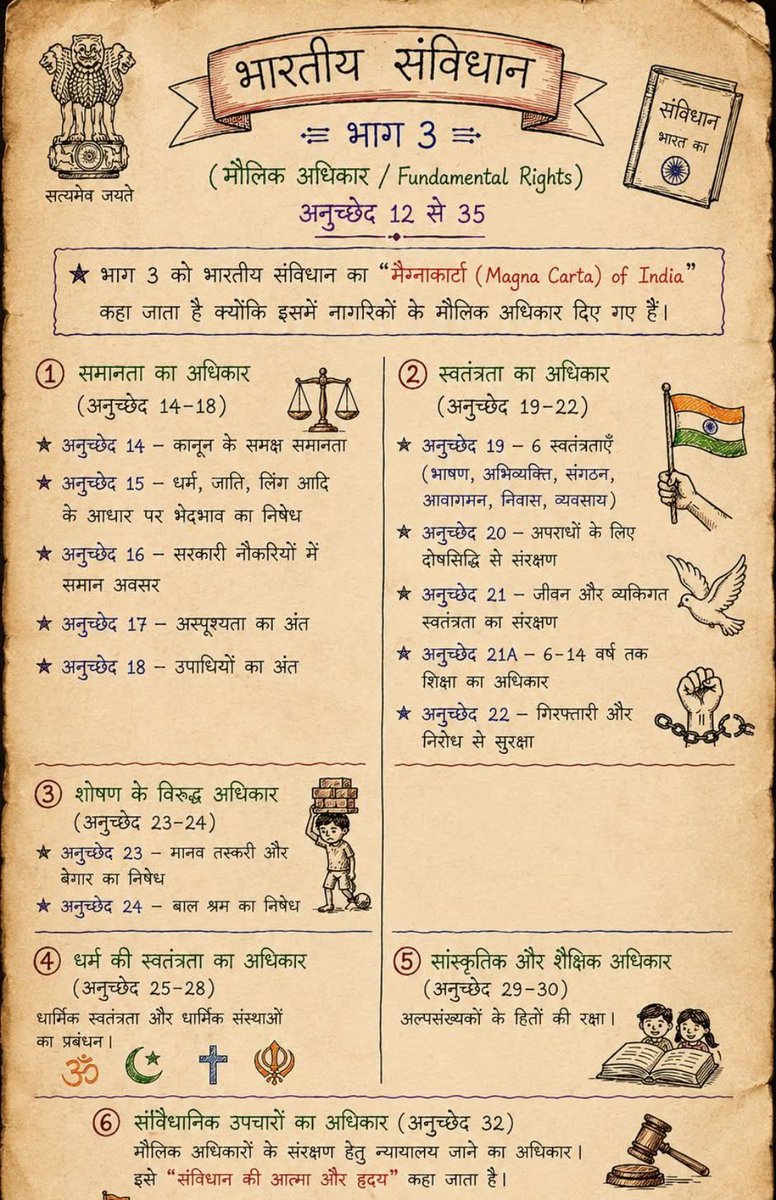 भारतीय संविधान
भाग 3
(मौलिक अधिकार / Fundamental Rights)
अनुच्छेद 12 से 35
सत्यमेव जयते
संविधान
भारत का
★ भाग 3 को भारतीय संविधान का “मैग्नाकार्टा (Magna Carta) of India”
कहा जाता है क्योंकि इसमें नागरिकों के मौलिक अधिकार दिए गए हैं।
① समानता का अधिकार
(अनुच्छेद 14-18)
★ अनुच्छेद 14 – कानून के समक्ष समानता
★ अनुच्छेद 15 – धर्म, जाति, लिंग आदि
के आधार पर भेदभाव का निषेध
★ अनुच्छेद 16 – सरकारी नौकरियों में
समान अवसर
★ अनुच्छेद 17 – अस्पृश्यता का अंत
★ अनुच्छेद 18 – उपाधियों का अंत
② स्वतंत्रता का अधिकार
(अनुच्छेद 19-22)
★ अनुच्छेद 19 – 6 स्वतंत्रताएँ
(भाषण, अभिव्यक्ति, संगठन,
आवागमन, निवास, व्यवसाय)
★ अनुच्छेद 20 – अपराधों के लिए
दोषसिद्धि से संरक्षण
★ अनुच्छेद 21 – जीवन और व्यकिगत
स्वतंत्रता का संरक्षण
★ अनुच्छेद 21A – 6-14 वर्ष तक
शिक्षा का अधिकार
★ अनुच्छेद 22 – गिरफ्तारी और
निरोध से सुरक्षा
③ शोषण के विरुद्ध अधिकार
(अनुच्छेद 23-24)
★ अनुच्छेद 23 – मानव तस्करी और
बेगार का निषेध
★ अनुच्छेद 24 – बाल श्रम का निषेध
④ धर्म की स्वतंत्रता का अधिकार
(अनुच्छेद 25-28)
धार्मिक स्वतंत्रता और धार्मिक संस्थाओं
का प्रबंधन।
ॐ
⑤ सांस्कृतिक और शैक्षिक अधिकार
(अनुच्छेद 29-30)
अल्पसंख्यकों के हितों की रक्षा।
⑥ संविैधानिक उपचारों का अधिकार (अनुच्छेद 32)
मौलिक अधिकारों के संरक्षण हेतु न्यायालय जाने का अधिकार।
इसे “संविधान की आत्मा और हृदय” कहा जाता है।